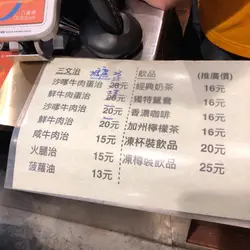 三文治
沙嗲牛肉蛋治 28元
鮮牛肉蛋治 20元
沙嗲牛肉治 20元
鮮牛肉治 20元
咸牛肉治 15元
火腿治 15元
菠蘿油 13元
飲品 (推廣價)
經典奶茶 16元
獨特鴛鴦 16元
香濃咖啡 16元
加州檸檬茶 16元
凍杯裝飲品 20元
凍樽裝飲品 25元